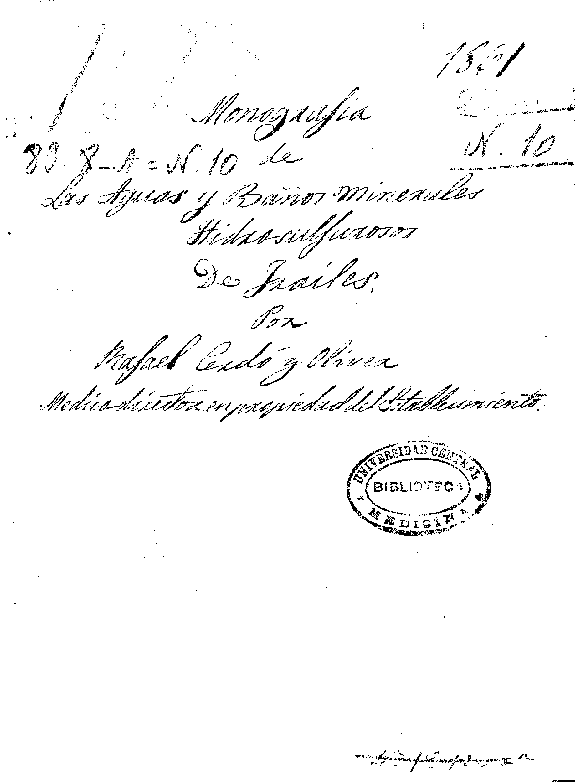 Monografia
N. 10
83 8-A=N.10 de
Las Aguas y Baños Minerales
Hidrosulfurosos
De Frailes.
Por
Rafael Cerdó y Oliver
Medico director en propiedad del Stablecimiento.
UNIVERSIDAD CENTRAL
BIBLIOTECA
MEDICINA